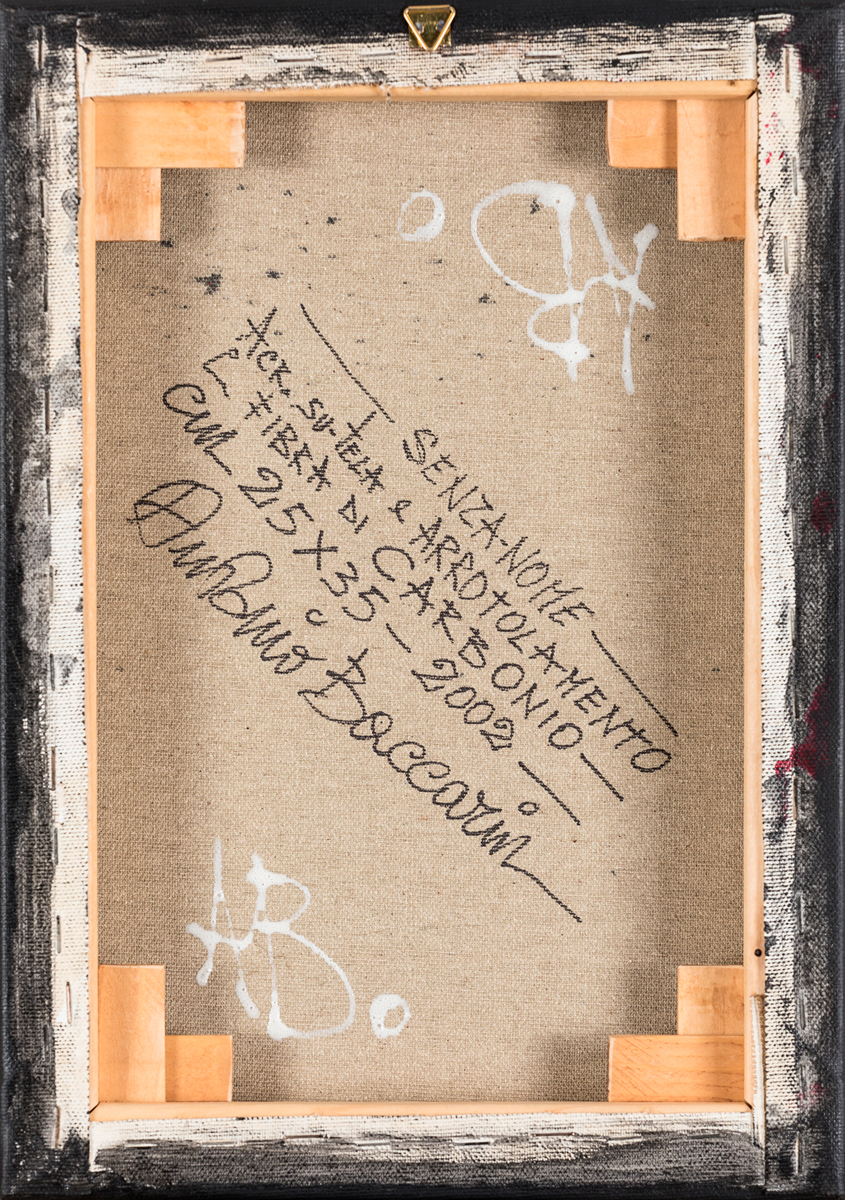 AB.
— SENZA-NOME —
ACR. SU-TELA e ARROTOLAMENTO
FIBRA DI CARBONIO —
cm 25X35 - 2002 —
Antonio Boccarin
AB.